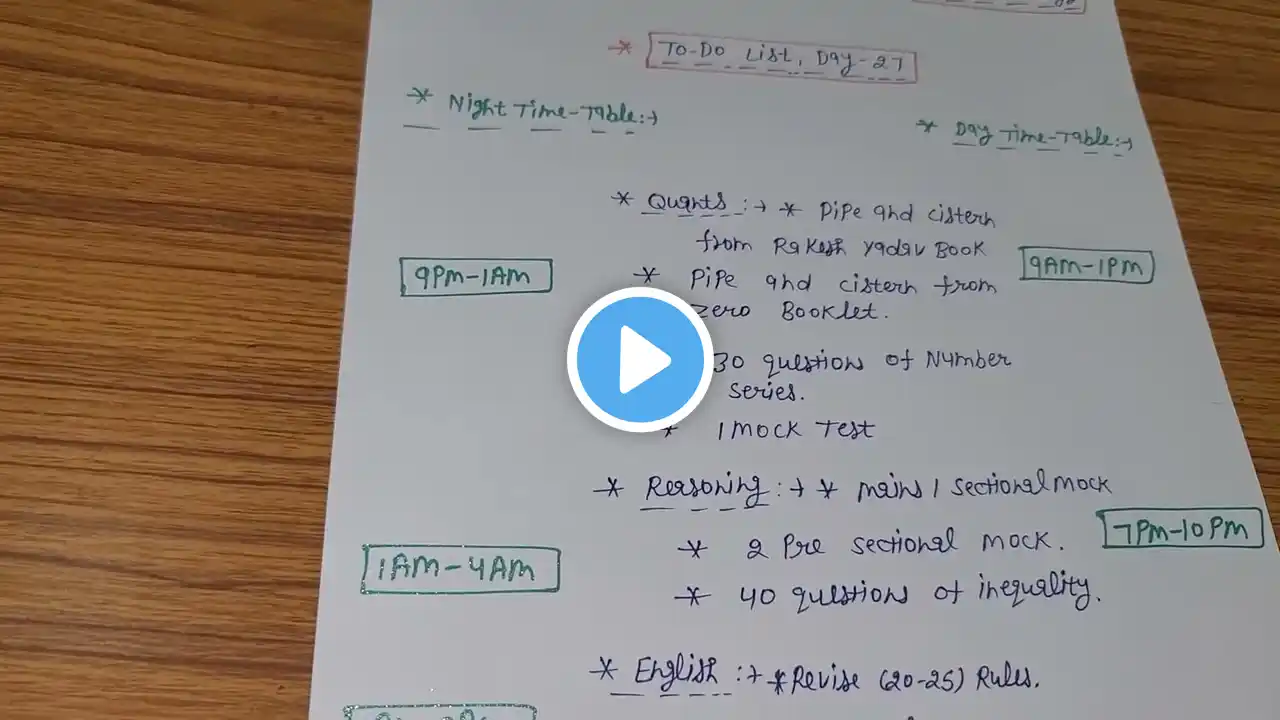 * To-Do List, Day-27
* Night Time-Table:→
* Day Time-Table:→
* Quants :→ * Pipe and cistern
from Rakesh Yadav Book
9PM-1AM
9AM-1PM
* Pipe and cistern from
Zero Booklet.
30 questions of Number
series.
* 1 Mock Test
* Reasoning :→ * mains 1 sectional mock
7PM-10PM
* 2 Pre sectional mock.
1AM-4AM
* 40 questions of inequality.
* English :→ * Revise (20-25) Rules.